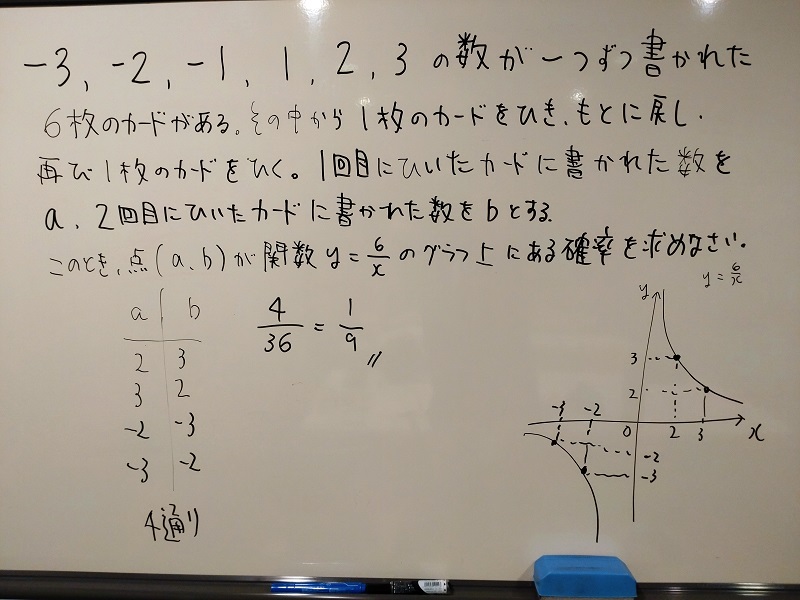 -3, -2, -1, 1, 2, 3 の数が一つずつ書かれた
6枚のカードがある。その中から1枚のカードをひき、もとに戻し、
再び1枚のカードをひく。1回目にひいたカードに書かれた数を
a、2回目にひいたカードに書かれた数をbとする。
このとき、点(a、b)が関数y=6/xのグラフ上にある確率を求めなさい。
a b
2 3
3 2
-2 -3
-3 -2
4通り
4/36 = 1/9 〃
y=6/x
y
3
2
-3 -2
0 2 3 x
-2
-3